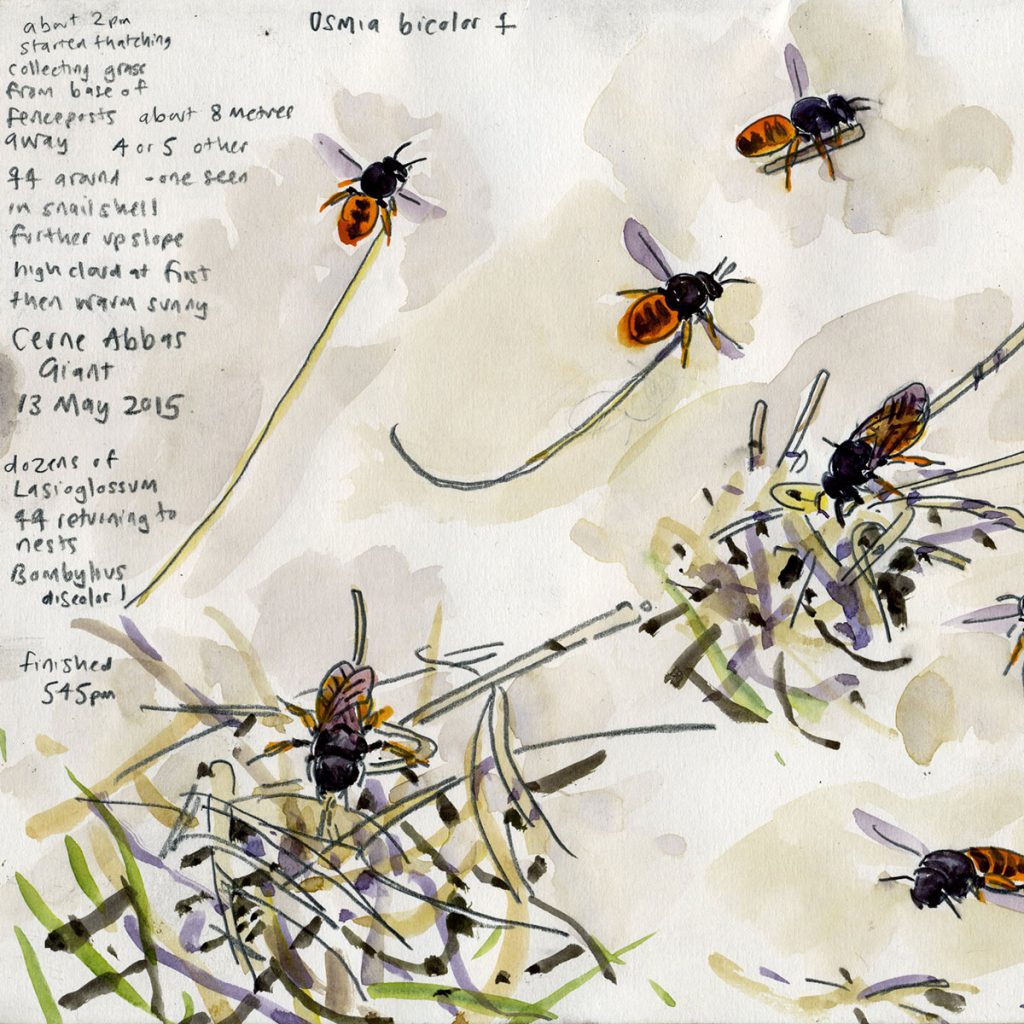 Osmia bicolor ♀
about 2pm
started thatching
collecting grass
from base of
fenceposts about 8 metres
away 4 or 5 other
♀♀ around - one seen
in snail shell
further up slope
high cloud at first
then warm sunny
Cerne Abbas
Giant
13 May 2015.
dozens of
Lasioglossum
♀♀ returning to
nests
Bombylius
discolor!
finished
545pm